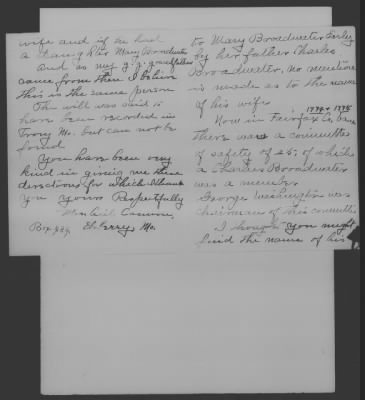 to Mary Broadwater Farley
by her father Charles
Broadwater, no mention
is made as to the name
of his wife
1774 & 1775
Now in Fairfax Co
there was a committee
of safety of 25, of which
a Charles Broadwater
was a member
George Washington was
chairman of this committee
I thought you might
find the name of his
wife and if he had
a daughter Mary Broadwater
And as my g. g. grandfather
came from there I believe
this is the same person
The will was said to
have been recorded in
Troy Mo. but can not be
found
You have been very
kind in giving me these
directions for which I thank
you Yours Respectfully
Mrs
Box 424 Elsberry, Mo.